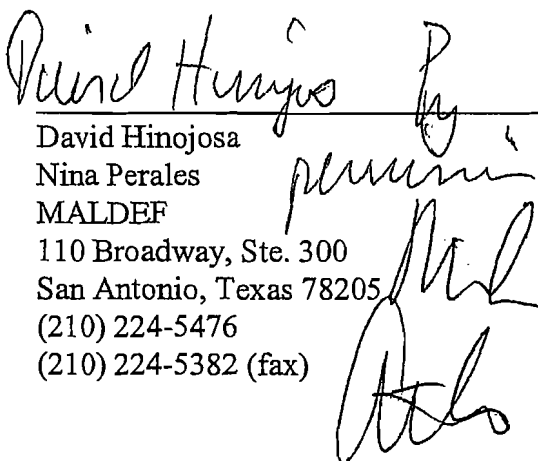 David Hinojosa By
permission
David Hinojosa
Nina Perales
MALDEF
110 Broadway, Ste. 300
San Antonio, Texas 78205
(210) 224-5476
(210) 224-5382 (fax)